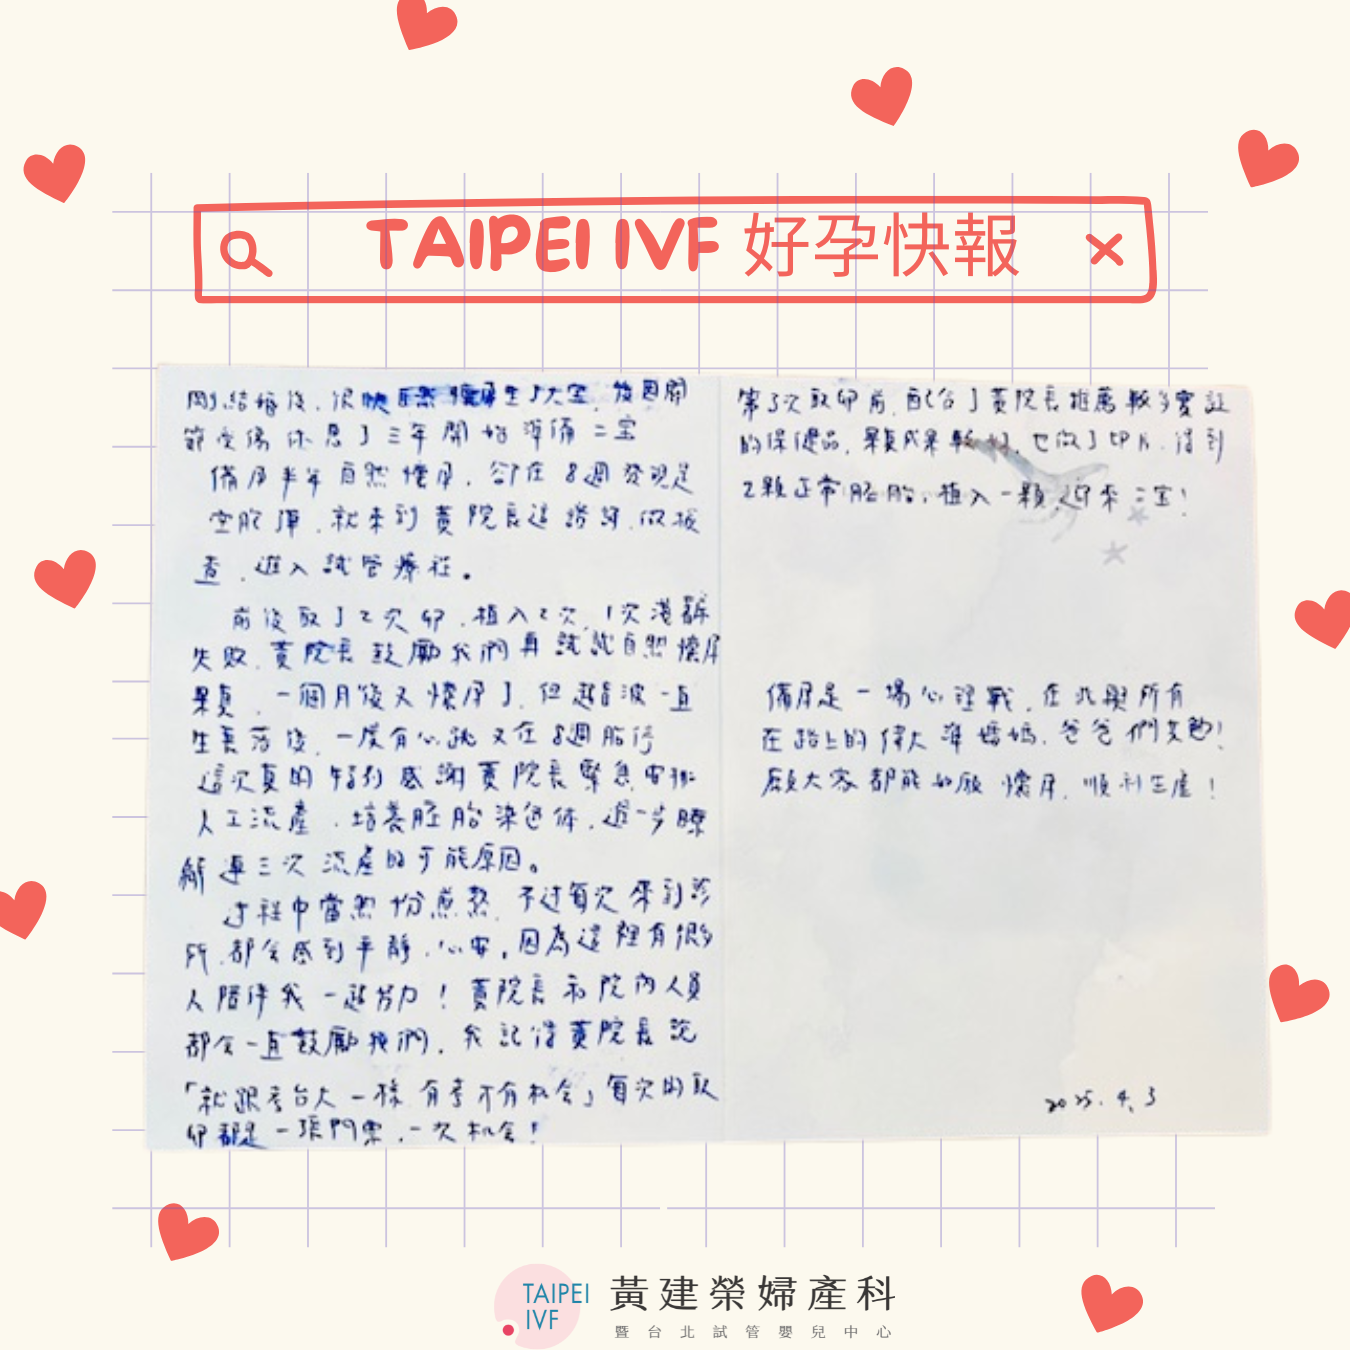 TAIPEI IVF 好孕快報
剛結婚後，很快自然懷孕生了大宝，後因關
節受傷休息了三年開始準備二宝
備孕半年自然懷孕，卻在8週發現是
空胞彈，就來到黃院長這諮詢，做檢
查，進入試管療程。
前後取了2次卵，植入2次，1次著床
失敗，黃院長鼓勵我們再試試自然懷孕
果真，一個月後又懷孕了，但超音波一直
生長落後，一度有心跳又在8週胎停
這次真的特別感謝黃院長緊急安排
人工流產，培養胚胎染色体，進一步瞭
解連三次流產的可能原因。
过程中當然份煎熬，不过每次來到診
所，都会感到平靜，心安，因為這裡有很多
人陪伴我一起努力！黃院長和院內人員
都会一直鼓勵我們，我記得黃院長說
「就跟考台大一樣，有考才有机会」每次的取
卵都是一張門票，一次机会！
第3次取卵前，配合了黃院長推薦較多實証
的保健品，果真成果較好，也做了切片，得到
2顆正常胚胎，植入一顆，迎來二宝！
備孕是一場心理戰，在此與所有
在路上的偉大準媽媽，爸爸們共勉！
願大家都能如願懷孕，順利生產！
2025.4.3
TAIPEI IVF
黃建榮婦產科
暨台北試管嬰兒中心